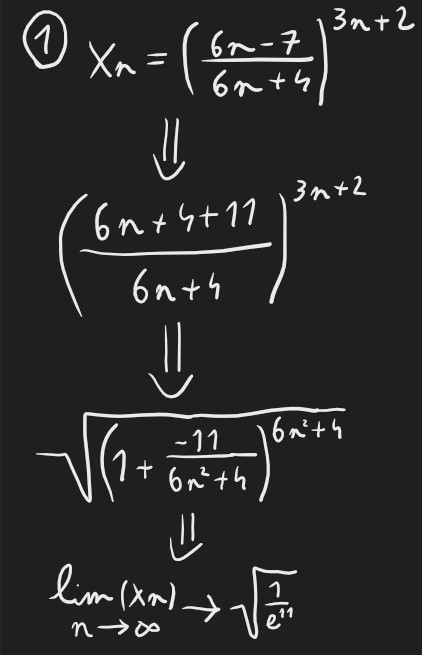 ① Xn = ((6n-7)/(6n+4))^(3n+2)
⇓
((6n+4+11)/(6n+4))^(3n+2)
⇓
√((1 + (-11)/(6n²+4))^(6n²+4))
⇓
lim(xn) n→∞ → √(1/e¹¹)